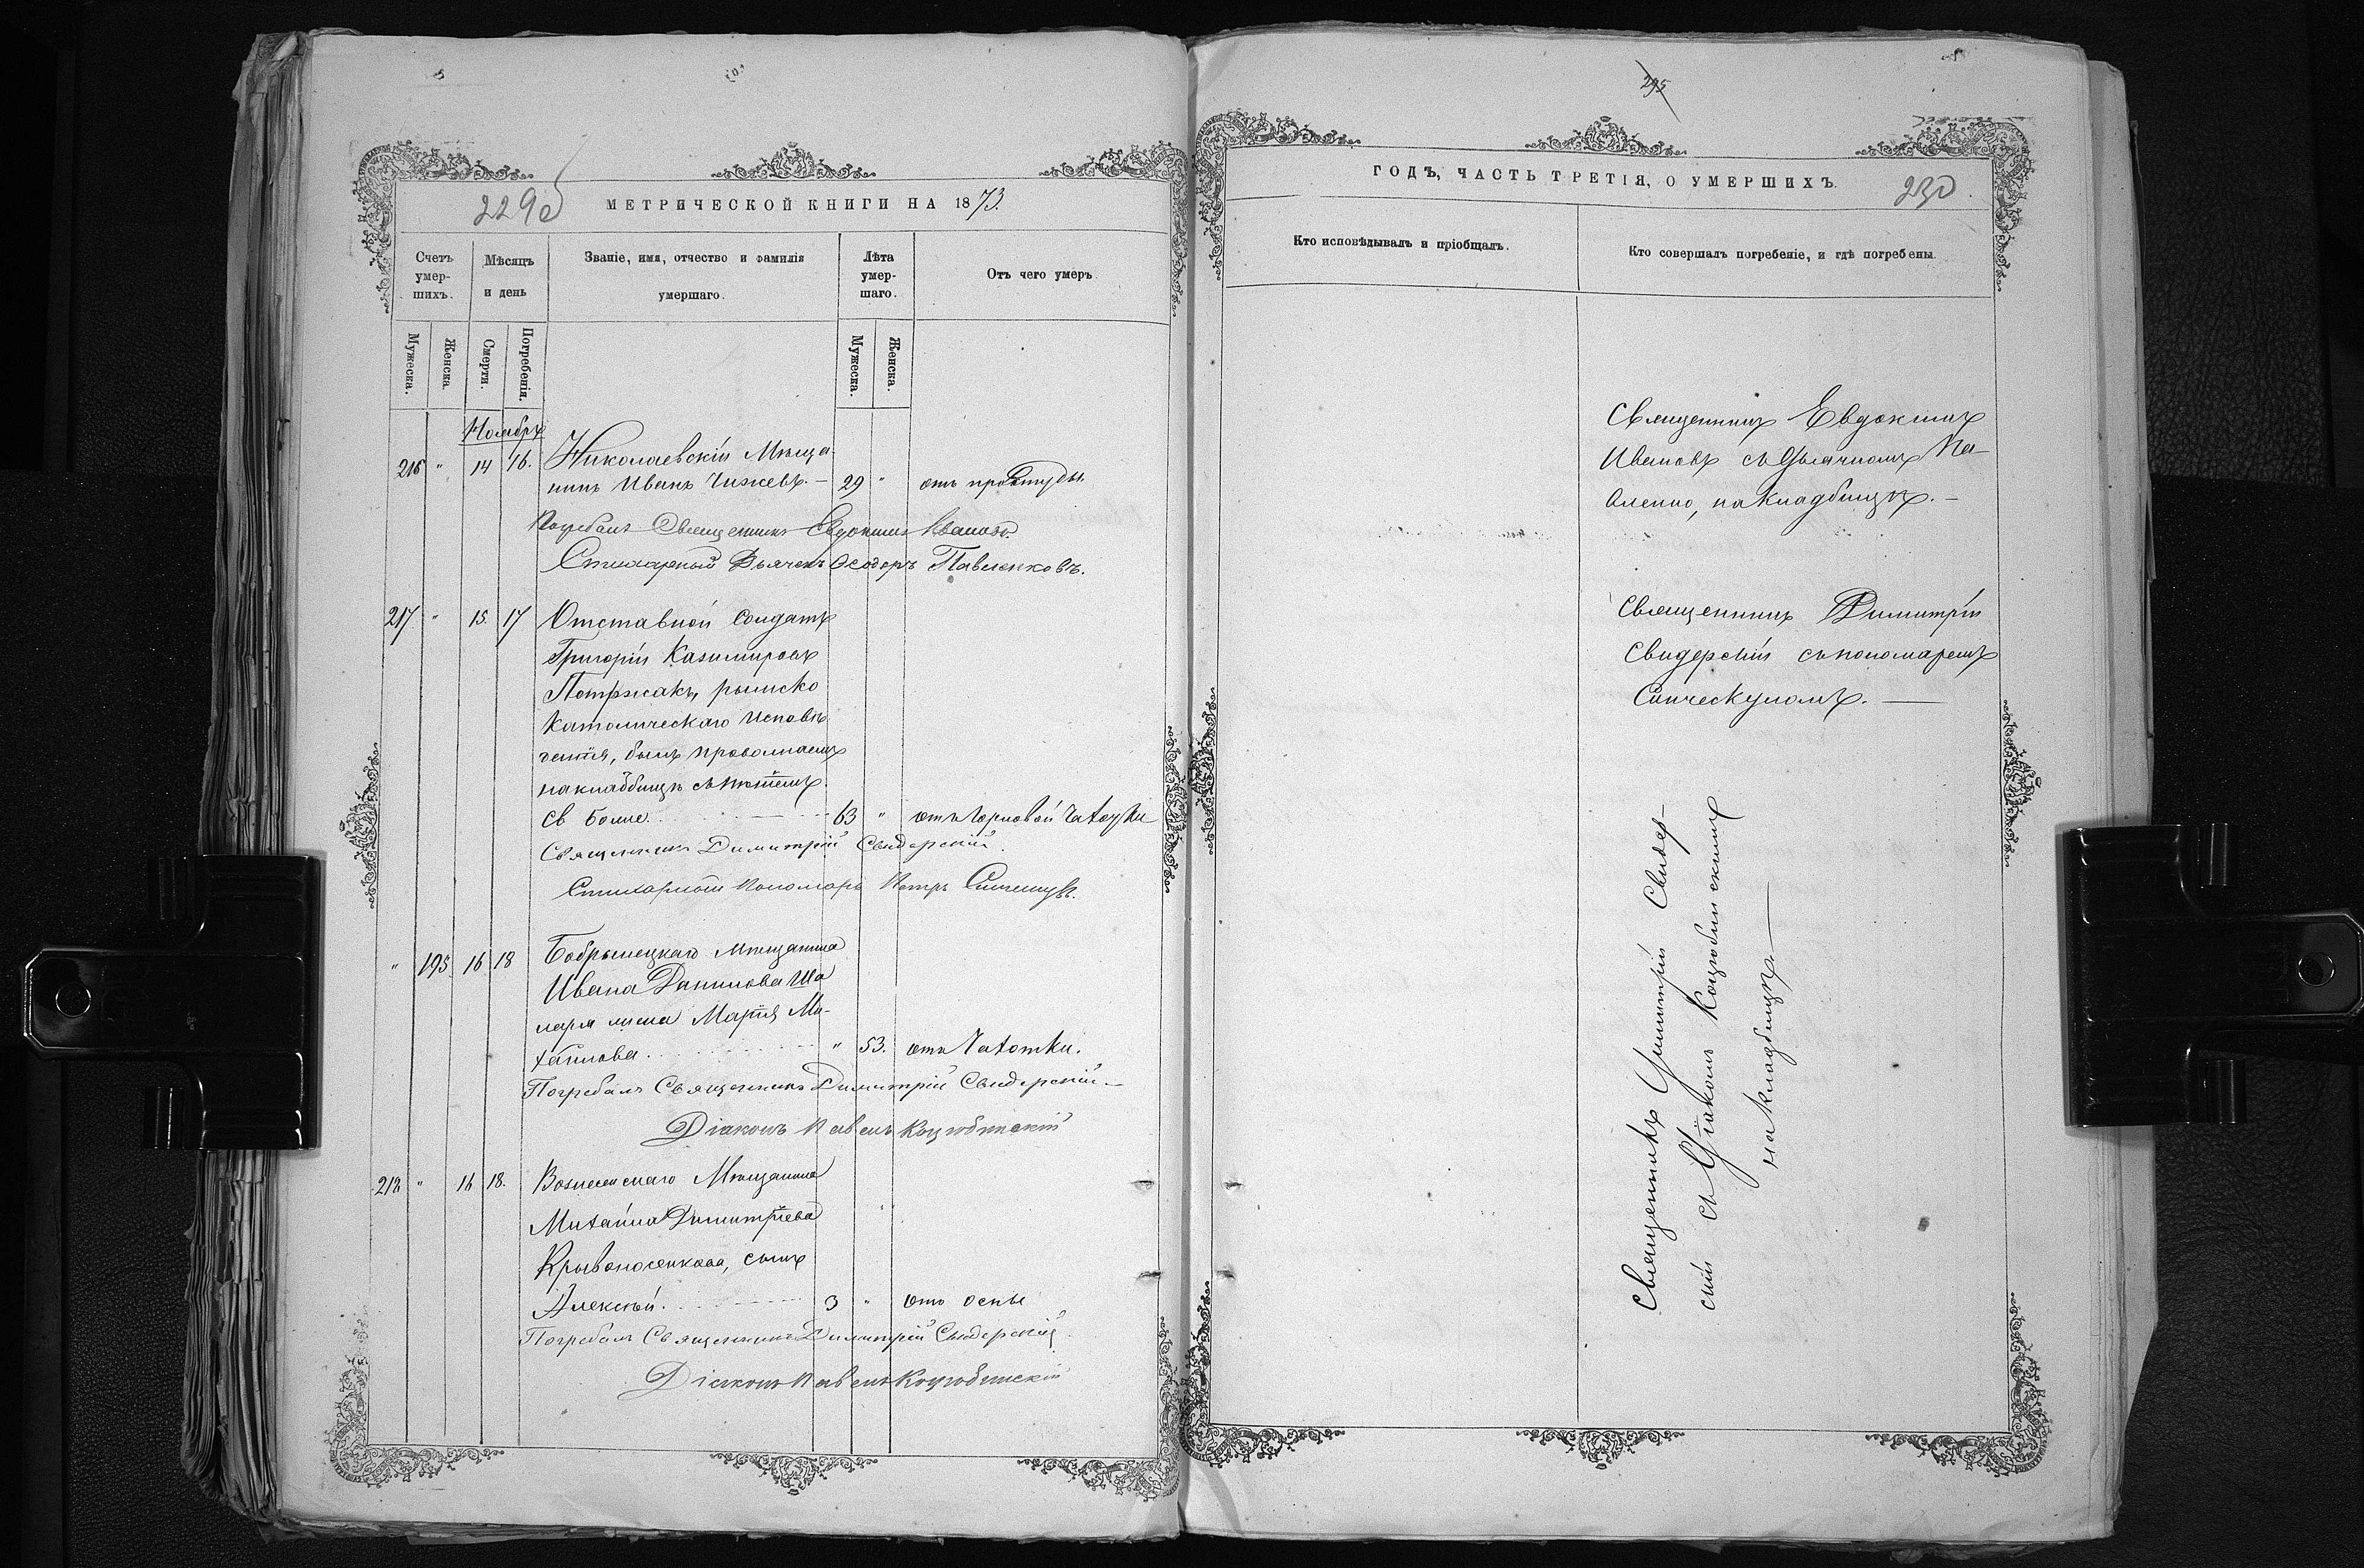 229об
МЕТРИЧЕСКОЙ КНИГИ НА 1873.
Счетъ умер-шихъ.
Мѣсяцъ и день
Званіе, имя, отчество и фамилія умершаго.
Лѣта умер-шаго.
Отъ чего умеръ.
Мужеска.
Женска.
Смерти.
Погребенія.
Мужеска.
Женска.
Ноябрь
216 " 14 16. Николаевскій Мѣща-
нинъ Иванъ Чижевъ. — 29 " отъ простуды.
Погребалъ Священникъ Евдокимъ Ивановъ.
Стихарный Дьячекъ Ѳеодоръ Павленковъ.
217 " 15. 17 Отставной солдатъ
Григорій Казимировъ
Петржакъ, римско
католическаго исповѣ
на кладбище съ пѣніемъ
Св Боже. 63 " отъ горловой чахотки
Священникъ Димитрій Свидерскій.
Стихарный Пономарь Петръ
" 195 16 18 Бобринецкаго мѣщанина
Ивана Данилова Ша
ларя жена Марія Ми-
хайлова. " 53. отъ чахотки.
Погребалъ Священникъ Димитрій Свидерскій —
Діаконъ Павелъ Коцюбинскій
218 " 16 18. Вознесенскаго Мѣщанина
Михаила Димитріева
Кривоносенкова, сынъ
Алексѣй. 3 " отъ оспы
Погребалъ Священникъ Димитрій Свидерскій
Діаконъ Павелъ Коцюбинскій
295
ГОДЪ, ЧАСТЬ ТРЕТІЯ, О УМЕРШИХЪ.
230
Кто исповѣдывалъ и пріобщалъ.
Кто совершалъ погребеніе, и гдѣ погребены.
Священникъ Евдокимъ
Ивановъ съ дьячкомъ Па-
вленко, на кладбищѣ. —
Священникъ Димитрій
Свидерскій съ пономаремъ
Священникъ Димитрій Свидер-
скій съ Діакономъ Коцюбинскимъ
на кладбищѣ. —